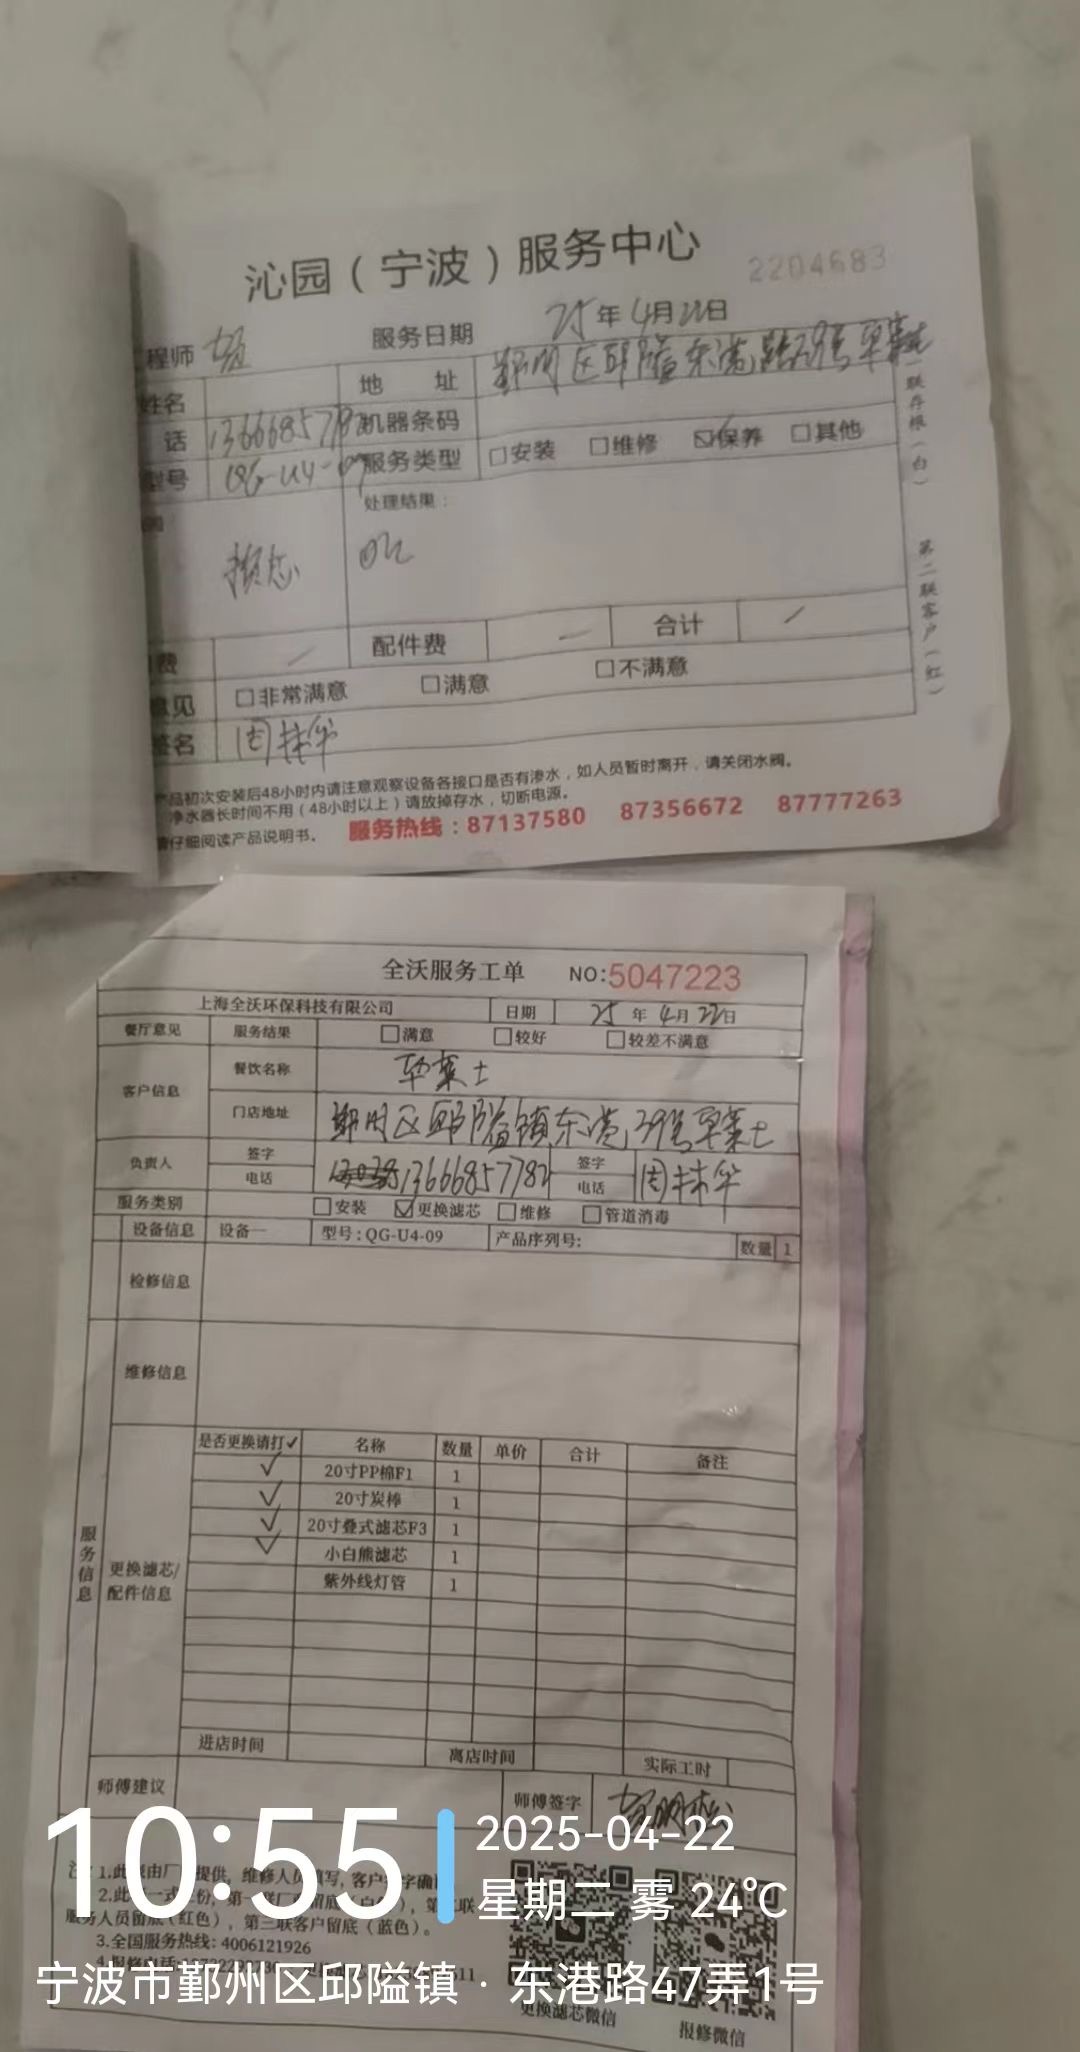 沁园（宁波）服务中心 2204683
程师 服务日期 25年4月22日
姓名 地 址 鄞州区邱隘东港路39号
话 13666857782 机器条码
型号 QG-U4-09 服务类型 □安装 □维修 ☑保养 □其他
处理结果：
换芯 OK
费 配件费 合计
意见 □非常满意 □满意 □不满意
签名 周林华
联存根（白） 第二联客户（红）
品初次安装后48小时内请注意观察设备各接口是否有渗水，如人员暂时离开，请关闭水阀。
净水器长时间不用（48小时以上）请放掉存水，切断电源。
请仔细阅读产品说明书。 服务热线：87137580 87356672 87777263
全沃服务工单 NO:5047223
上海全沃环保科技有限公司 日期 25年4月22日
餐厅意见 服务结果 □满意 □较好 □较差不满意
客户信息 餐饮名称 莱士
门店地址 鄞州区邱隘镇东港39号 莱士
负责人 签字 电话 13666857782 签字 电话 周林华
服务类别 □安装 ☑更换滤芯 □维修 □管道消毒
设备信息 设备一 型号：QG-U4-09 产品序列号： 数量 1
检修信息
维修信息
服务信息
更换滤芯/配件信息
是否更换请打✓ 名称 数量 单价 合计 备注
✓ 20寸PP棉F1 1
✓ 20寸炭棒 1
✓ 20寸叠式滤芯F3 1
✓ 小白熊滤芯 1
紫外线灯管 1
进店时间 离店时间 实际工时
师傅建议 师傅签字
10:55 2025-04-22
星期二 雾 24℃
服务人员留底（红色），第三联客户留底（蓝色）。
3.全国服务热线：4006121926
宁波市鄞州区邱隘镇·东港路47弄1号
更换滤芯微信 报修微信